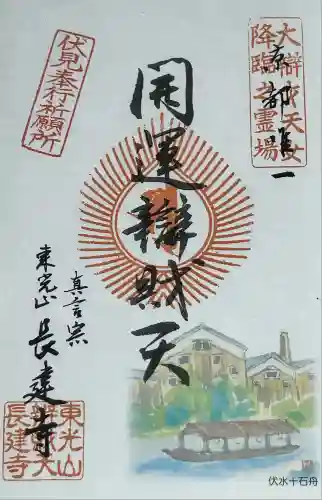 大辯才天女
降臨之霊場
京都唯一
開運辯財天
伏見奉行祈願所
真言宗
東光山 長建寺
東光山
長建寺
伏水十石舟